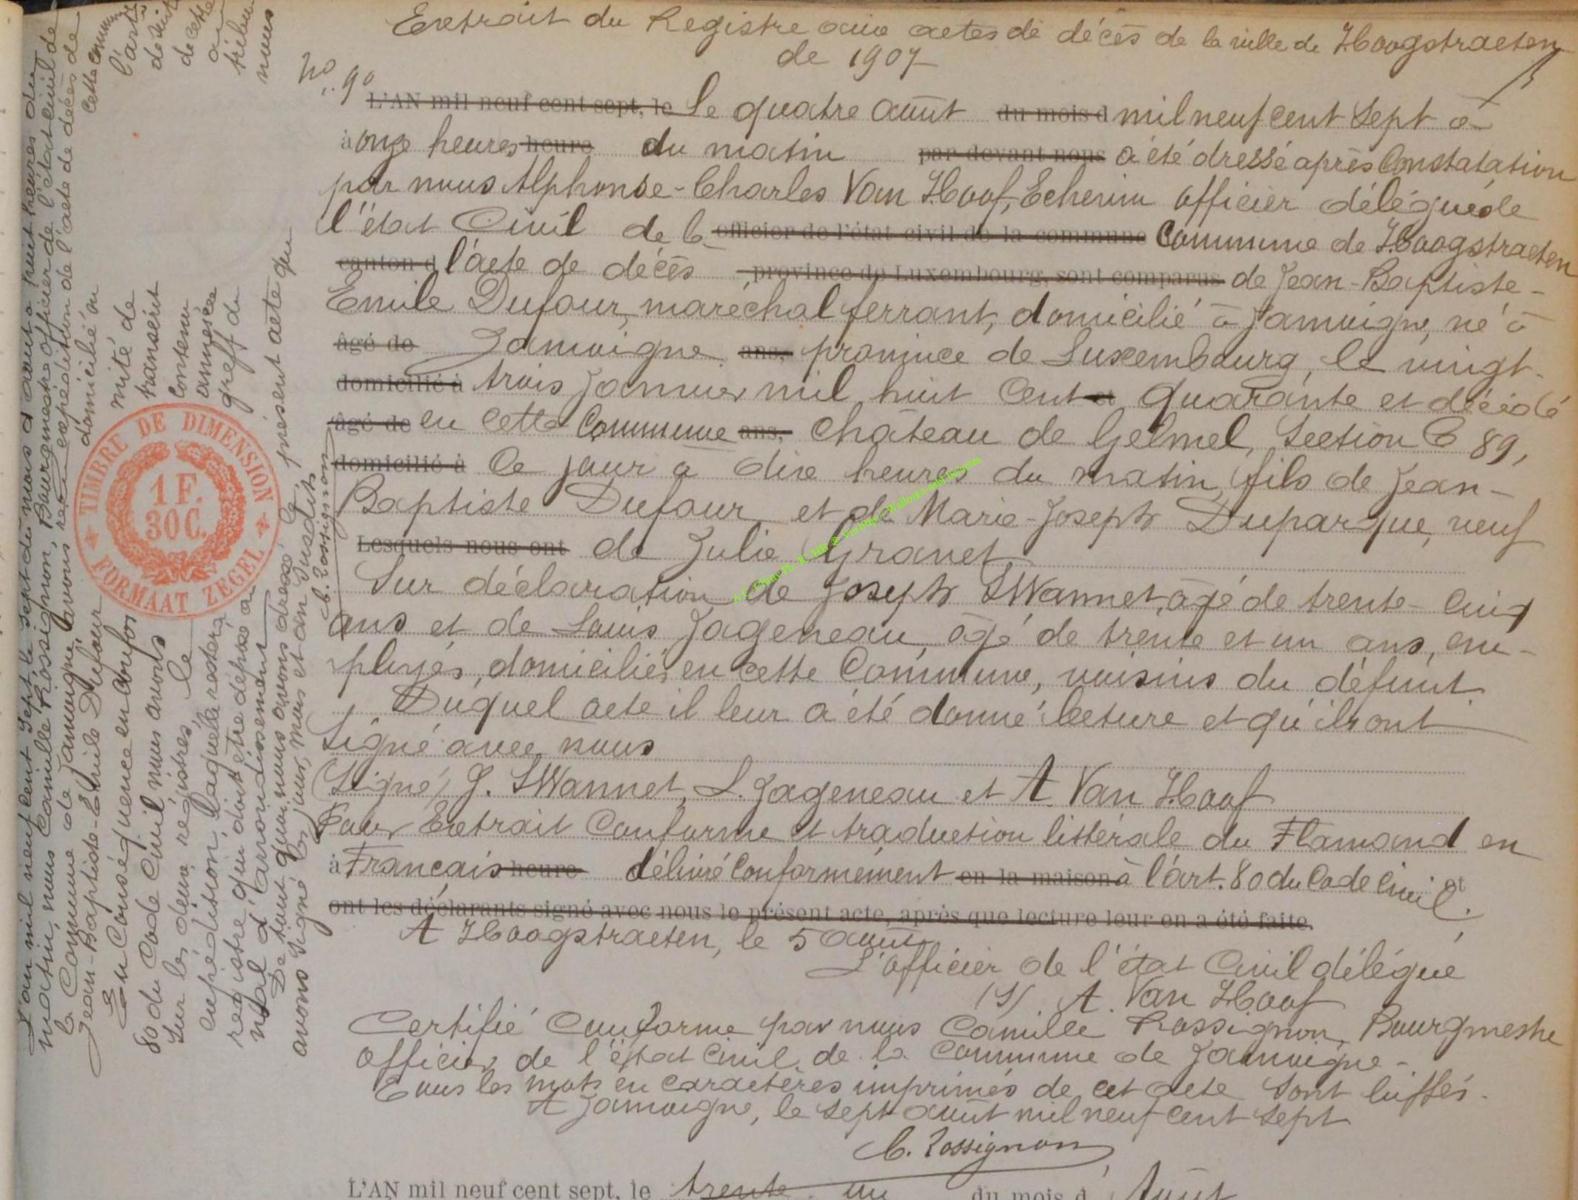 Extrait du Registre aux actes de décès de la ville de Hoogstraeten
de 1907
No. 9o L'AN mil neuf cent sept, le Le quatre août du mois d mil neuf cent sept à
à onze heures heure du matin par devant nous a été dressé après Constatation
par nous Alphonse-Charles Van Hoof, Echevin officier délégué de
l'état Civil de la officier de l'état civil de la commune Commune de Hoogstraeten
canton d l'acte de décès province de Luxembourg, sont comparus de Jean-Baptiste-
Emile Dufour, maréchal ferrant, domicilié à Jamoigne, né à
âgé de Jamoigne ans, province de Luxembourg, le vingt-
domicilié à trois Janvier mil huit Cent et quarante et décédé
âgé de en cette Commune ans, château de Gelmel, Section C 89,
domicilié à Ce jour à dix heures du matin, fils de Jean-
Baptiste Dufour et de Marie-Joseph Duparque, veuf
Lesquels nous ont de Julie Granet
Sur déclaration de Joseph SWannet, âgé de trente-Cinq
ans et de Louis Jageneau, âgé de trente et un ans, em-
ployés, domiciliés en cette Commune, voisins du défunt
Duquel acte il leur a été donné lecture et qu'ils ont
Signé avec nous
(Signé) J. SWannet, L. Jageneau et A. Van Hoof
Pour Extrait Conforme et traduction littérale du Flamand en
à Français heure délivré Conformément en la maison à l'art. 80 du Code Civil, et
ont les déclarants signé avec nous le présent acte, après que lecture leur en a été faite.
A Hoogstraeten, le 5 août
L'officier de l'état Civil délégué
(S) A. Van Hoof
Certifié Conforme par nous Camille Rossignon, Bourgmestre
officier de l'état Civil de la Commune de Jamoigne.-
Tous les mots en caractères imprimés de cet acte sont biffés.-
A Jamoigne, le sept août mil neuf cent sept
C. Rossignon
L'AN mil neuf cent sept, le trente un du mois d' Août
L'an mil neuf cent Sept, le sept du mois d'août à huit heures du
matin, nous Camille Rossignon, Bourgmestre officier de l'état civil de
la Commune de Jamoigne avons expédition de l'acte de décès de
Jean-Baptiste-Emile Dufour domicilié en cette commune
En Conséquence en confor mité de l'arti
80 du Code Civil, nous avons transcrit
Sur les deux registres le Contenu de cette
expédition, laquelle restera annexée au
registre qui doit être déposé au greffe du tribu
nal d'arrondissement nous
De tout quoi nous avons dressé le présent acte que
avons signé les jour, mois et an susdits
C. Rossignon
TIMBRE DE DIMENSION
1 F.
30 C.
FORMAAT ZEGEL